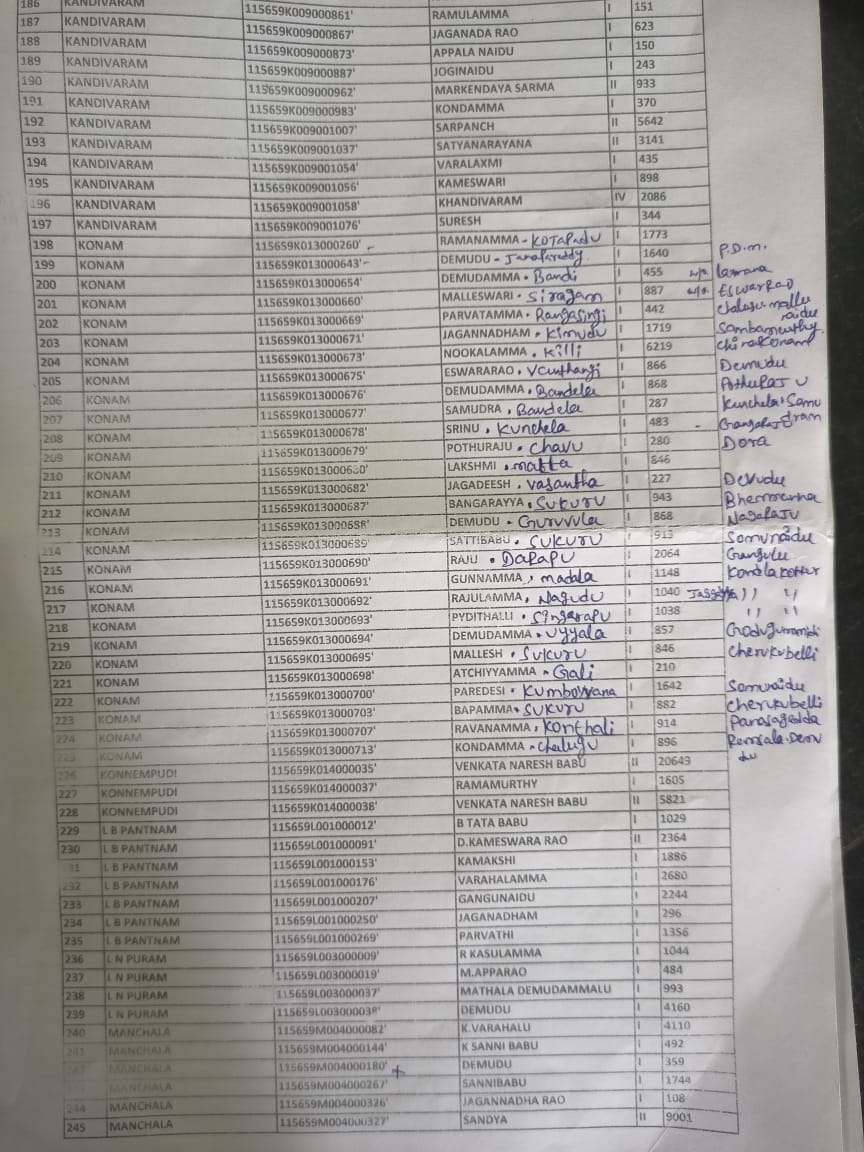 186 KANDIVARAM 115659K009000861' RAMULAMMA I 151
187 KANDIVARAM 115659K009000867' JAGANADA RAO I 623
188 KANDIVARAM 115659K009000873' APPALA NAIDU I 150
189 KANDIVARAM 115659K009000887' JOGINAIDU I 243
190 KANDIVARAM 115659K009000962' MARKENDAYA SARMA II 933
191 KANDIVARAM 115659K009000983' KONDAMMA I 370
192 KANDIVARAM 115659K009001007' SARPANCH II 5642
193 KANDIVARAM 115659K009001037' SATYANARAYANA II 3141
194 KANDIVARAM 115659K009001054' VARALAXMI I 435
195 KANDIVARAM 115659K009001056' KAMESWARI I 898
196 KANDIVARAM 115659K009001058' KHANDIVARAM IV 2086
197 KANDIVARAM 115659K009001076' SURESH I 344
198 KONAM 115659K013000260' RAMANAMMA - KOTAPADU I 1773
199 KONAM 115659K013000643' DEMUDU - Janapareddy I 1640 P.D.M.
200 KONAM 115659K013000654' DEMUDAMMA . Bandi I 455 w/o lamana
201 KONAM 115659K013000660' MALLESWARI . Siragam I 887 w/o. ESwarRao
202 KONAM 115659K013000669' PARVATAMMA . Rangasingi I 442 mallu naidu
203 KONAM 115659K013000671' JAGANNADHAM . Kimudu I 1719 Sambamurthy
204 KONAM 115659K013000673' NOOKALAMMA . Killi I 6219 chinakonam
205 KONAM 115659K013000675' ESWARARAO . Vanthangi I 866 Demudu
206 KONAM 115659K013000676' DEMUDAMMA . Bandela I 868 PothuRaJu
207 KONAM 115659K013000677' SAMUDRA . Bandela I 287 Kunchela Samu
208 KONAM 115659K013000678' SRINU . Kunchela I 483 - GangaRaJ dram
209 KONAM 115659K013000679' POTHURAJU . chavu I 280 Dora
210 KONAM 115659K013000680' LAKSHMI . matta I 846
211 KONAM 115659K013000682' JAGADEESH . vasantha I 227 Devudu
212 KONAM 115659K013000687' BANGARAYYA . SUKURU I 943
213 KONAM 115659K013000688' DEMUDU - Guruvula I 868 NagaRaJu
214 KONAM 115659K013000689' SATTIBABU . SUKURU I 913 Somunaidu
215 KONAM 115659K013000690' RAJU . DAPAPU I 2064 Gangulu
216 KONAM 115659K013000691' GUNNAMMA , madala I 1148
217 KONAM 115659K013000692' RAJULAMMA . Nagudu I 1040 '' ''
218 KONAM 115659K013000693' PYDITHALLI . Singarapu I 1038 '' ''
219 KONAM 115659K013000694' DEMUDAMMA . Uyyala I 857
220 KONAM 115659K013000695' MALLESH . SUKURU I 846 cherukubelli
221 KONAM 115659K013000698' ATCHIYYAMMA - Gali I 210
222 KONAM 115659K013000700' PAREDESI . Kumbovyana I 1642 Somunaidu
223 KONAM 115659K013000703' BAPAMMA . SUKURU I 882 cherukubelli
224 KONAM 115659K013000707' RAVANAMMA , Konthali I 914
225 KONAM 115659K013000713' KONDAMMA - chalugu I 896
226 KONNEMPUDI 115659K014000035' VENKATA NARESH BABU II 20643
227 KONNEMPUDI 115659K014000037' RAMAMURTHY I 1605
228 KONNEMPUDI 115659K014000038' VENKATA NARESH BABU II 5821
229 L B PANTNAM 115659L001000012' B TATA BABU I 1029
230 L B PANTNAM 115659L001000091' D.KAMESWARA RAO II 2364
231 L B PANTNAM 115659L001000153' KAMAKSHI I 1886
232 L B PANTNAM 115659L001000176' VARAHALAMMA I 2680
233 L B PANTNAM 115659L001000207' GANGUNAIDU I 2244
234 L B PANTNAM 115659L001000250' JAGANADHAM I 296
235 L B PANTNAM 115659L001000269' PARVATHI I 1356
236 L N PURAM 115659L003000009' R KASULAMMA I 1044
237 L N PURAM 115659L003000019' M.APPARAO I 484
238 L N PURAM 115659L003000037' MATHALA DEMUDAMMALU I 993
239 L N PURAM 115659L003000038' DEMUDU I 4160
240 MANCHALA 115659M004000082' K.VARAHALU I 4110
241 MANCHALA 115659M004000144' K SANNI BABU I 492
242 MANCHALA 115659M004000180' + DEMUDU I 359
MANCHALA 115659M004000267' SANNIBABU I 1744
244 MANCHALA 115659M004000326' JAGANNADHA RAO I 108
245 MANCHALA 115659M004000327' SANDYA II 9001